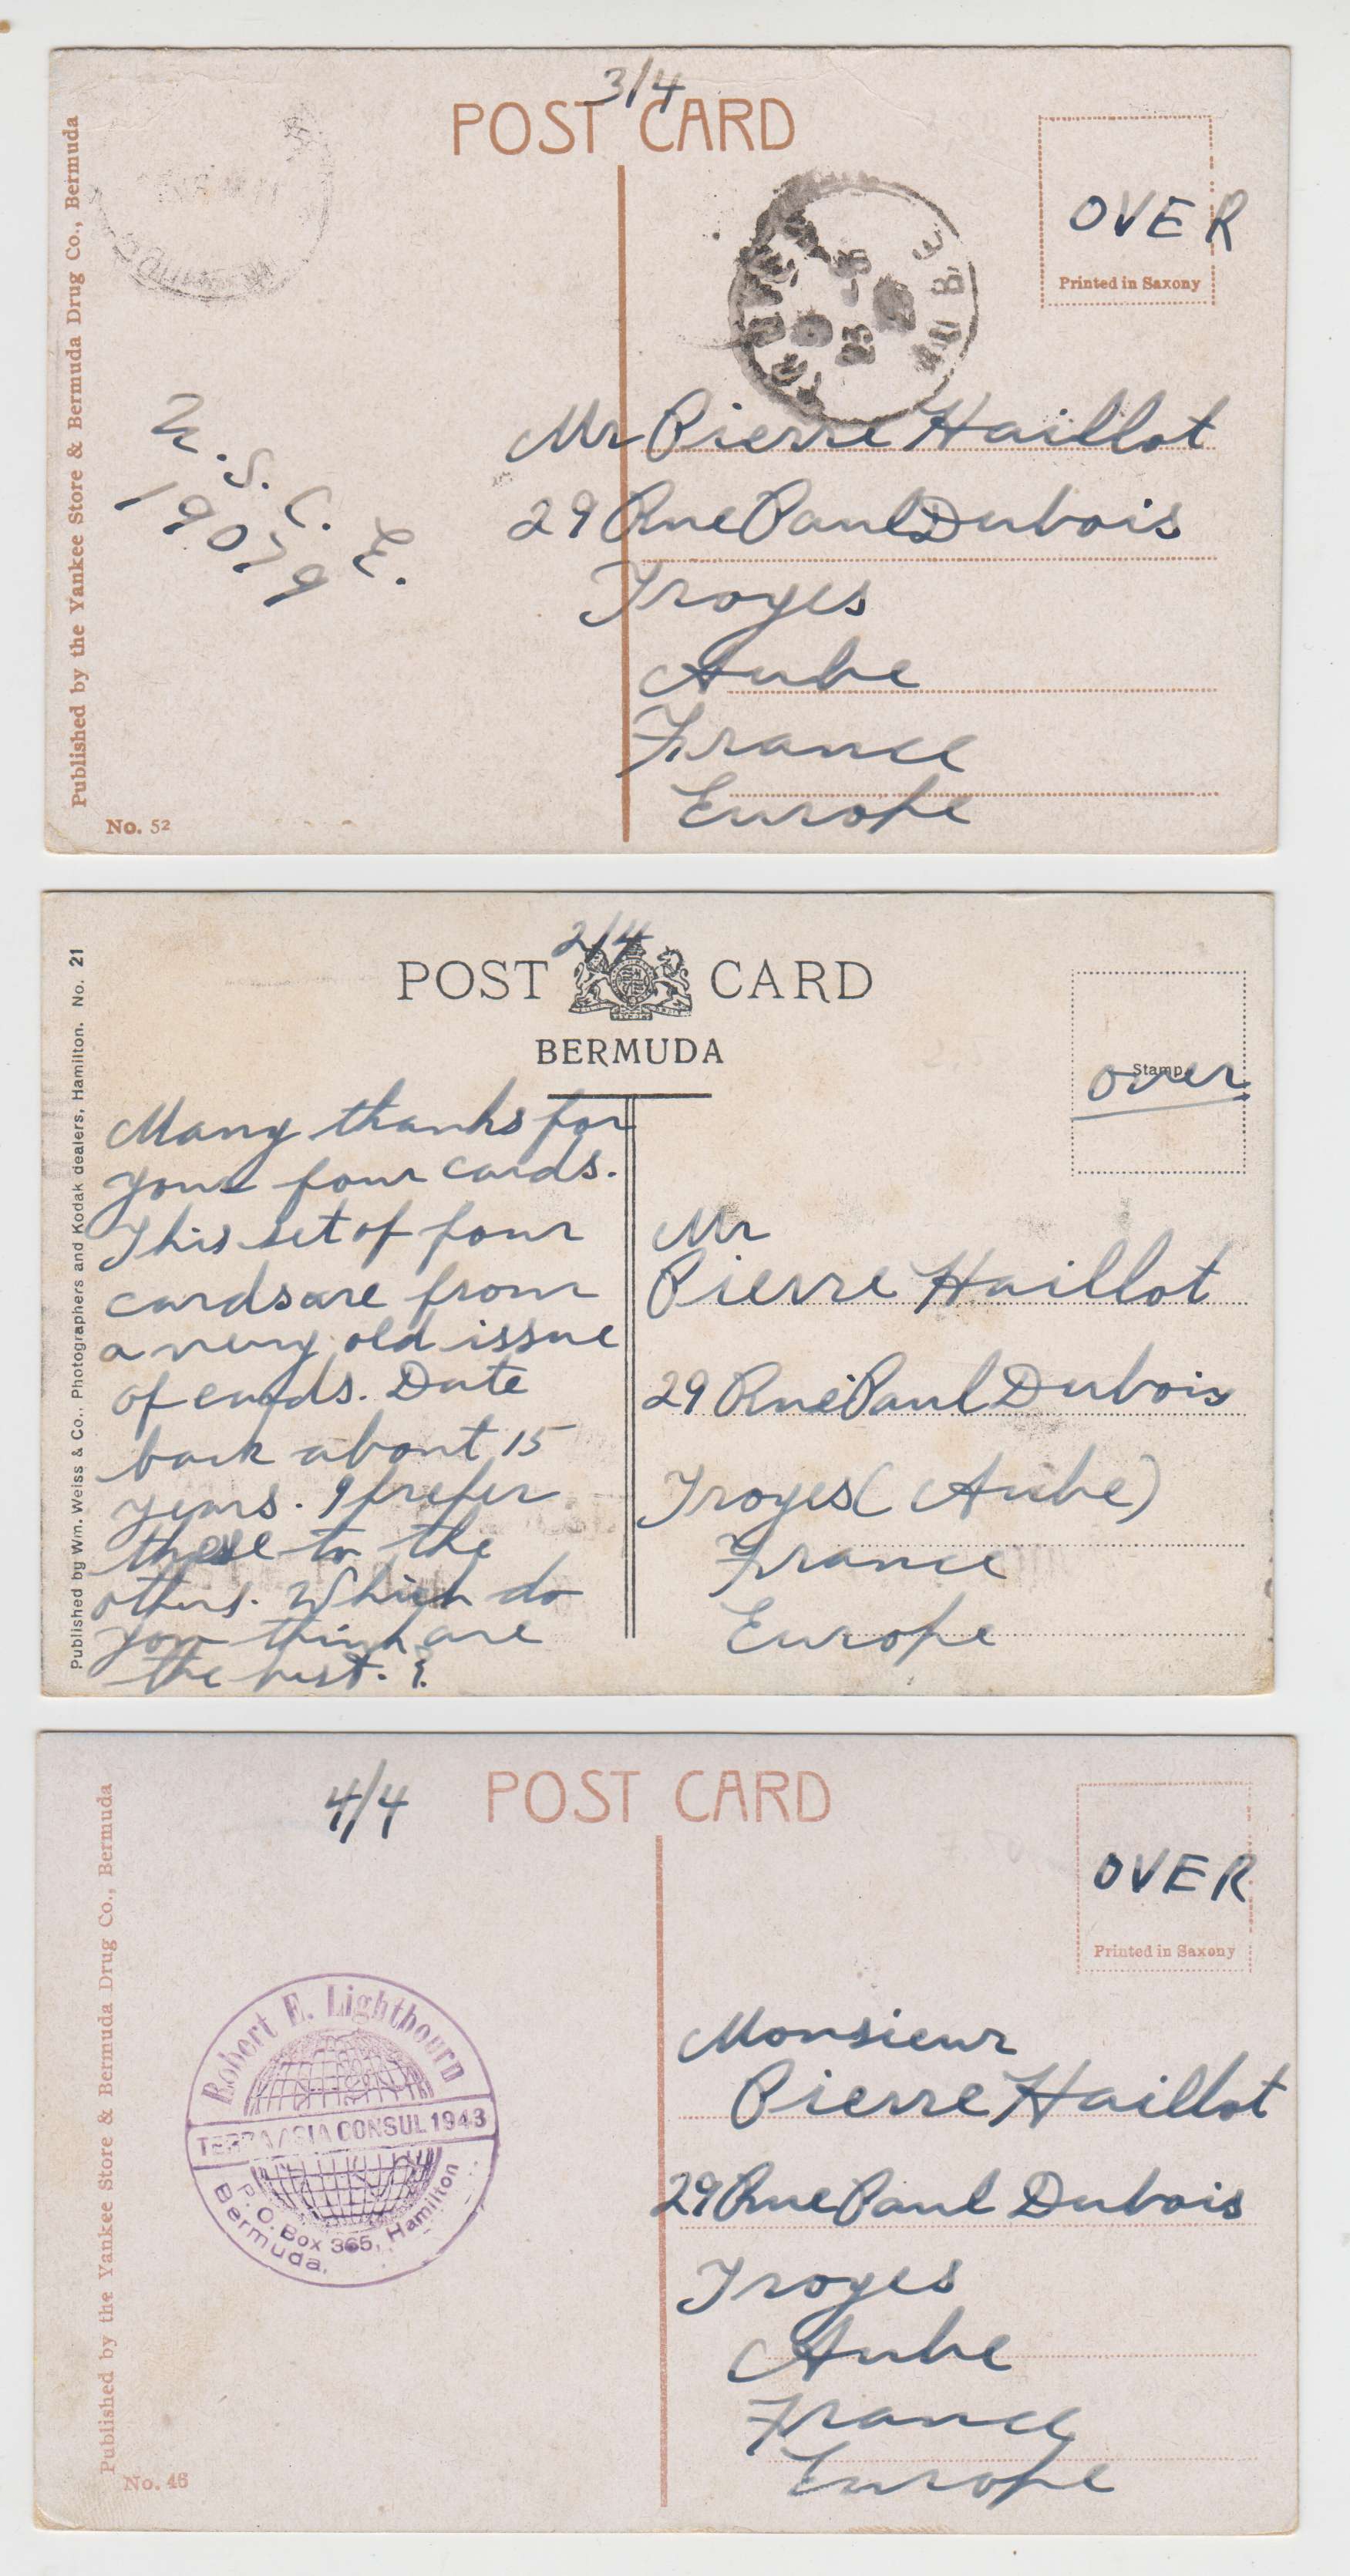 3/4
POST CARD
OVER
Printed in Saxony
Published by the Yankee Store & Bermuda Drug Co., Bermuda
AUBE
U.S.C.E.
19079
Mr Pierre Haillot
29 Rue Paul Dubois
Troyes
Aube
France
Europe
No. 52
2/4
POST CARD
BERMUDA
Stamp
over
Published by Wm. Weiss & Co., Photographers and Kodak dealers, Hamilton. No. 21
Many thanks for
your four cards.
This set of four
cards are from
a very old issue
of cards. Date
back about 15
years. I prefer
these to the
others. Which do
you think are
the best. ?
Mr
Pierre Haillot
29 Rue Paul Dubois
Troyes (Aube)
France
Europe
4/4
POST CARD
OVER
Printed in Saxony
Published by the Yankee Store & Bermuda Drug Co., Bermuda
Robert E. Lightbourn
TERRA/ASIA CONSUL 1943
P.O. Box 365, Hamilton
Bermuda.
Monsieur
Pierre Haillot
29 Rue Paul Dubois
Troyes
Aube
France
Europe
No. 46